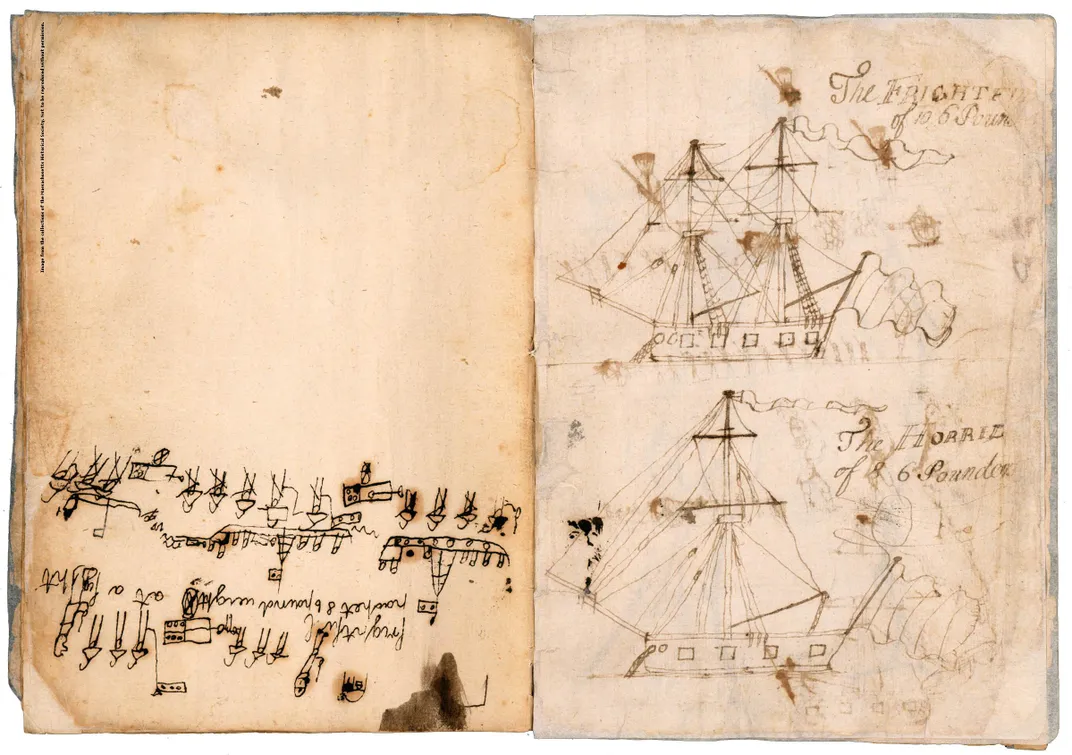 Image from the collections of the Massachusetts Historical Society. Not to be reproduced without permission.
at a fight
8 6 pound weight
The FRIGHTF
of 10 6 Poun
The HORRID
of 8 6 Pounder